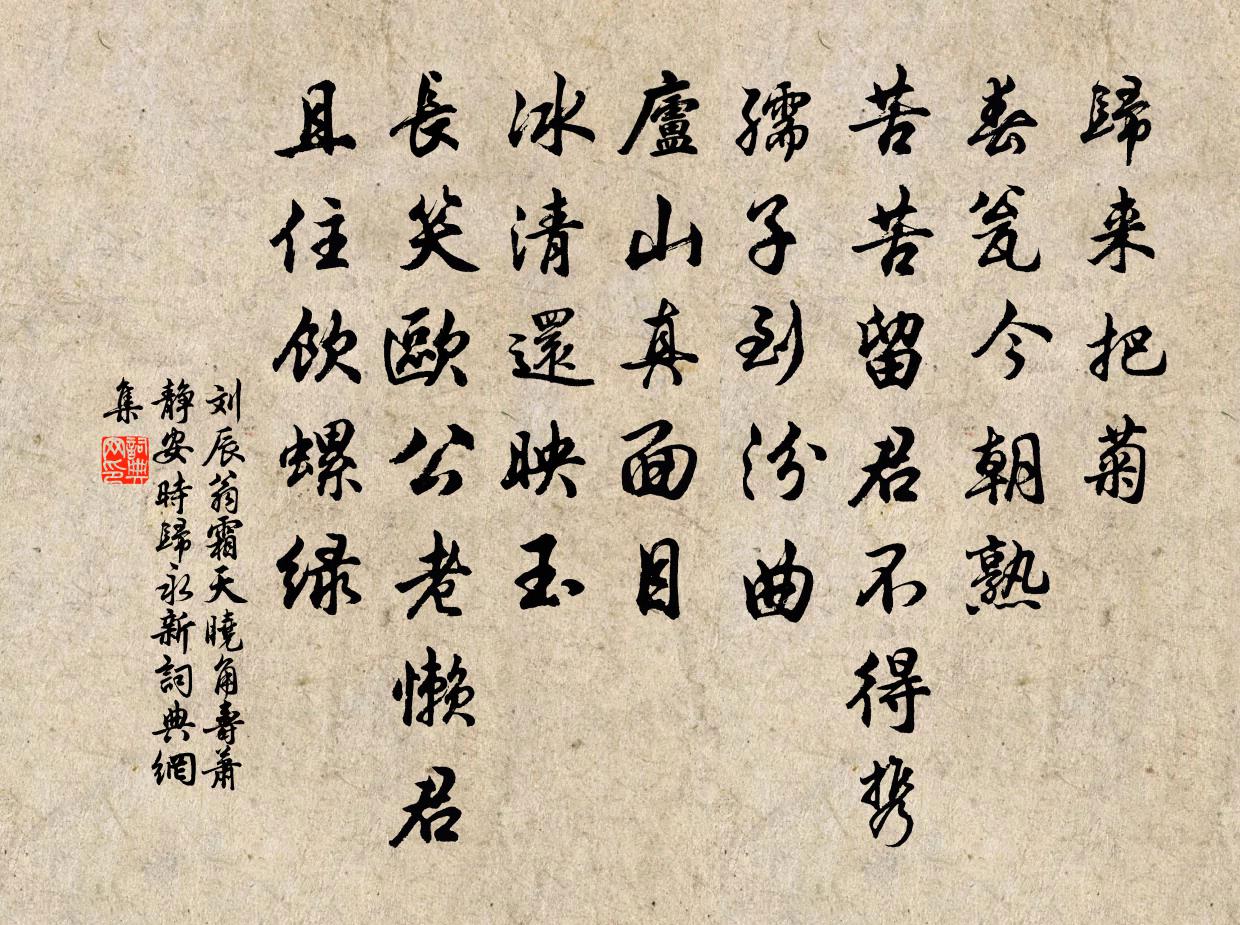 歸来把菊
春瓮今朝熟
苦苦留君不得携
孺子到汾曲
廬山真面目
冰清還映玉
長笑歐公老懶君
且住飲螺緑
刘辰翁霜天曉角壽蕭
静安時歸永新詞典網
集
詞典網印